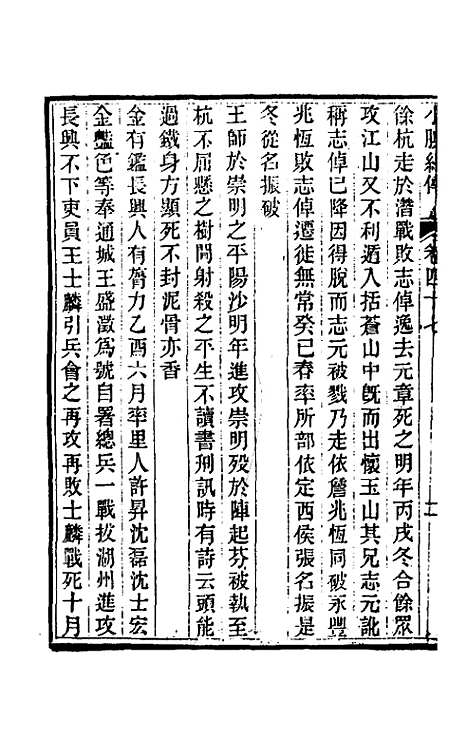 小腆紀傳 卷四十七 二
餘杭走於潛戰敗志倬逸去元章死之明年丙戌冬合餘眾
攻江山又不利遁入括蒼山中旣而出懷玉山其兄志元訛
稱志倬已降因得脫而志元被戮乃走依詹兆恆同破永豐
兆恆敗志倬遷徙無常癸巳春率所部依定西侯張名振是
冬從名振破
王師於崇明之平陽沙明年進攻崇明歿於陣起芬被執至
杭不屈懸之樹間射殺之平生不讀書刑訊時有詩云頭能
過鐵身方顯死不封泥骨亦香
金有鑑長興人有膂力乙酉六月率里人許昇沈磊沈士宏
金盤色等奉通城王盛澂爲號自署總兵一戰拔湖州進攻
長興不下吏員王士麟引兵會之再攻再敗士麟戰死十月